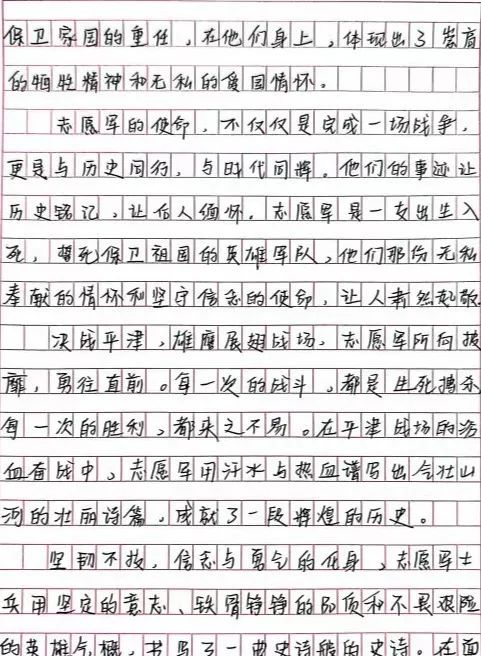 保卫家国的重任，在他们身上，体现出了崇高
的牺牲精神和无私的爱国情怀。
志愿军的使命，不仅仅是完成一场战争，
更是与历史同行，与时代同辉。他们的事迹让
历史铭记，让后人缅怀。志愿军是一支出生入
死，誓死保卫祖国的英雄军队，他们那份无私
奉献的情怀和坚守信念的使命，让人肃然起敬
决战平津，雄鹰展翅战场，志愿军所向披
靡，勇往直前。每一次的战斗，都是生死搏杀
每一次的胜利，都来之不易。在平津战场的浴
血奋战中，志愿军用汗水与热血谱写出气壮山
河的壮丽诗篇，成就了一段辉煌的历史。
坚韧不拔，信念与勇气的化身，志愿军士
兵用坚定的意志、铁骨铮铮的品质和不畏艰险
的英雄气概，书写了一曲史诗般的史诗。在面